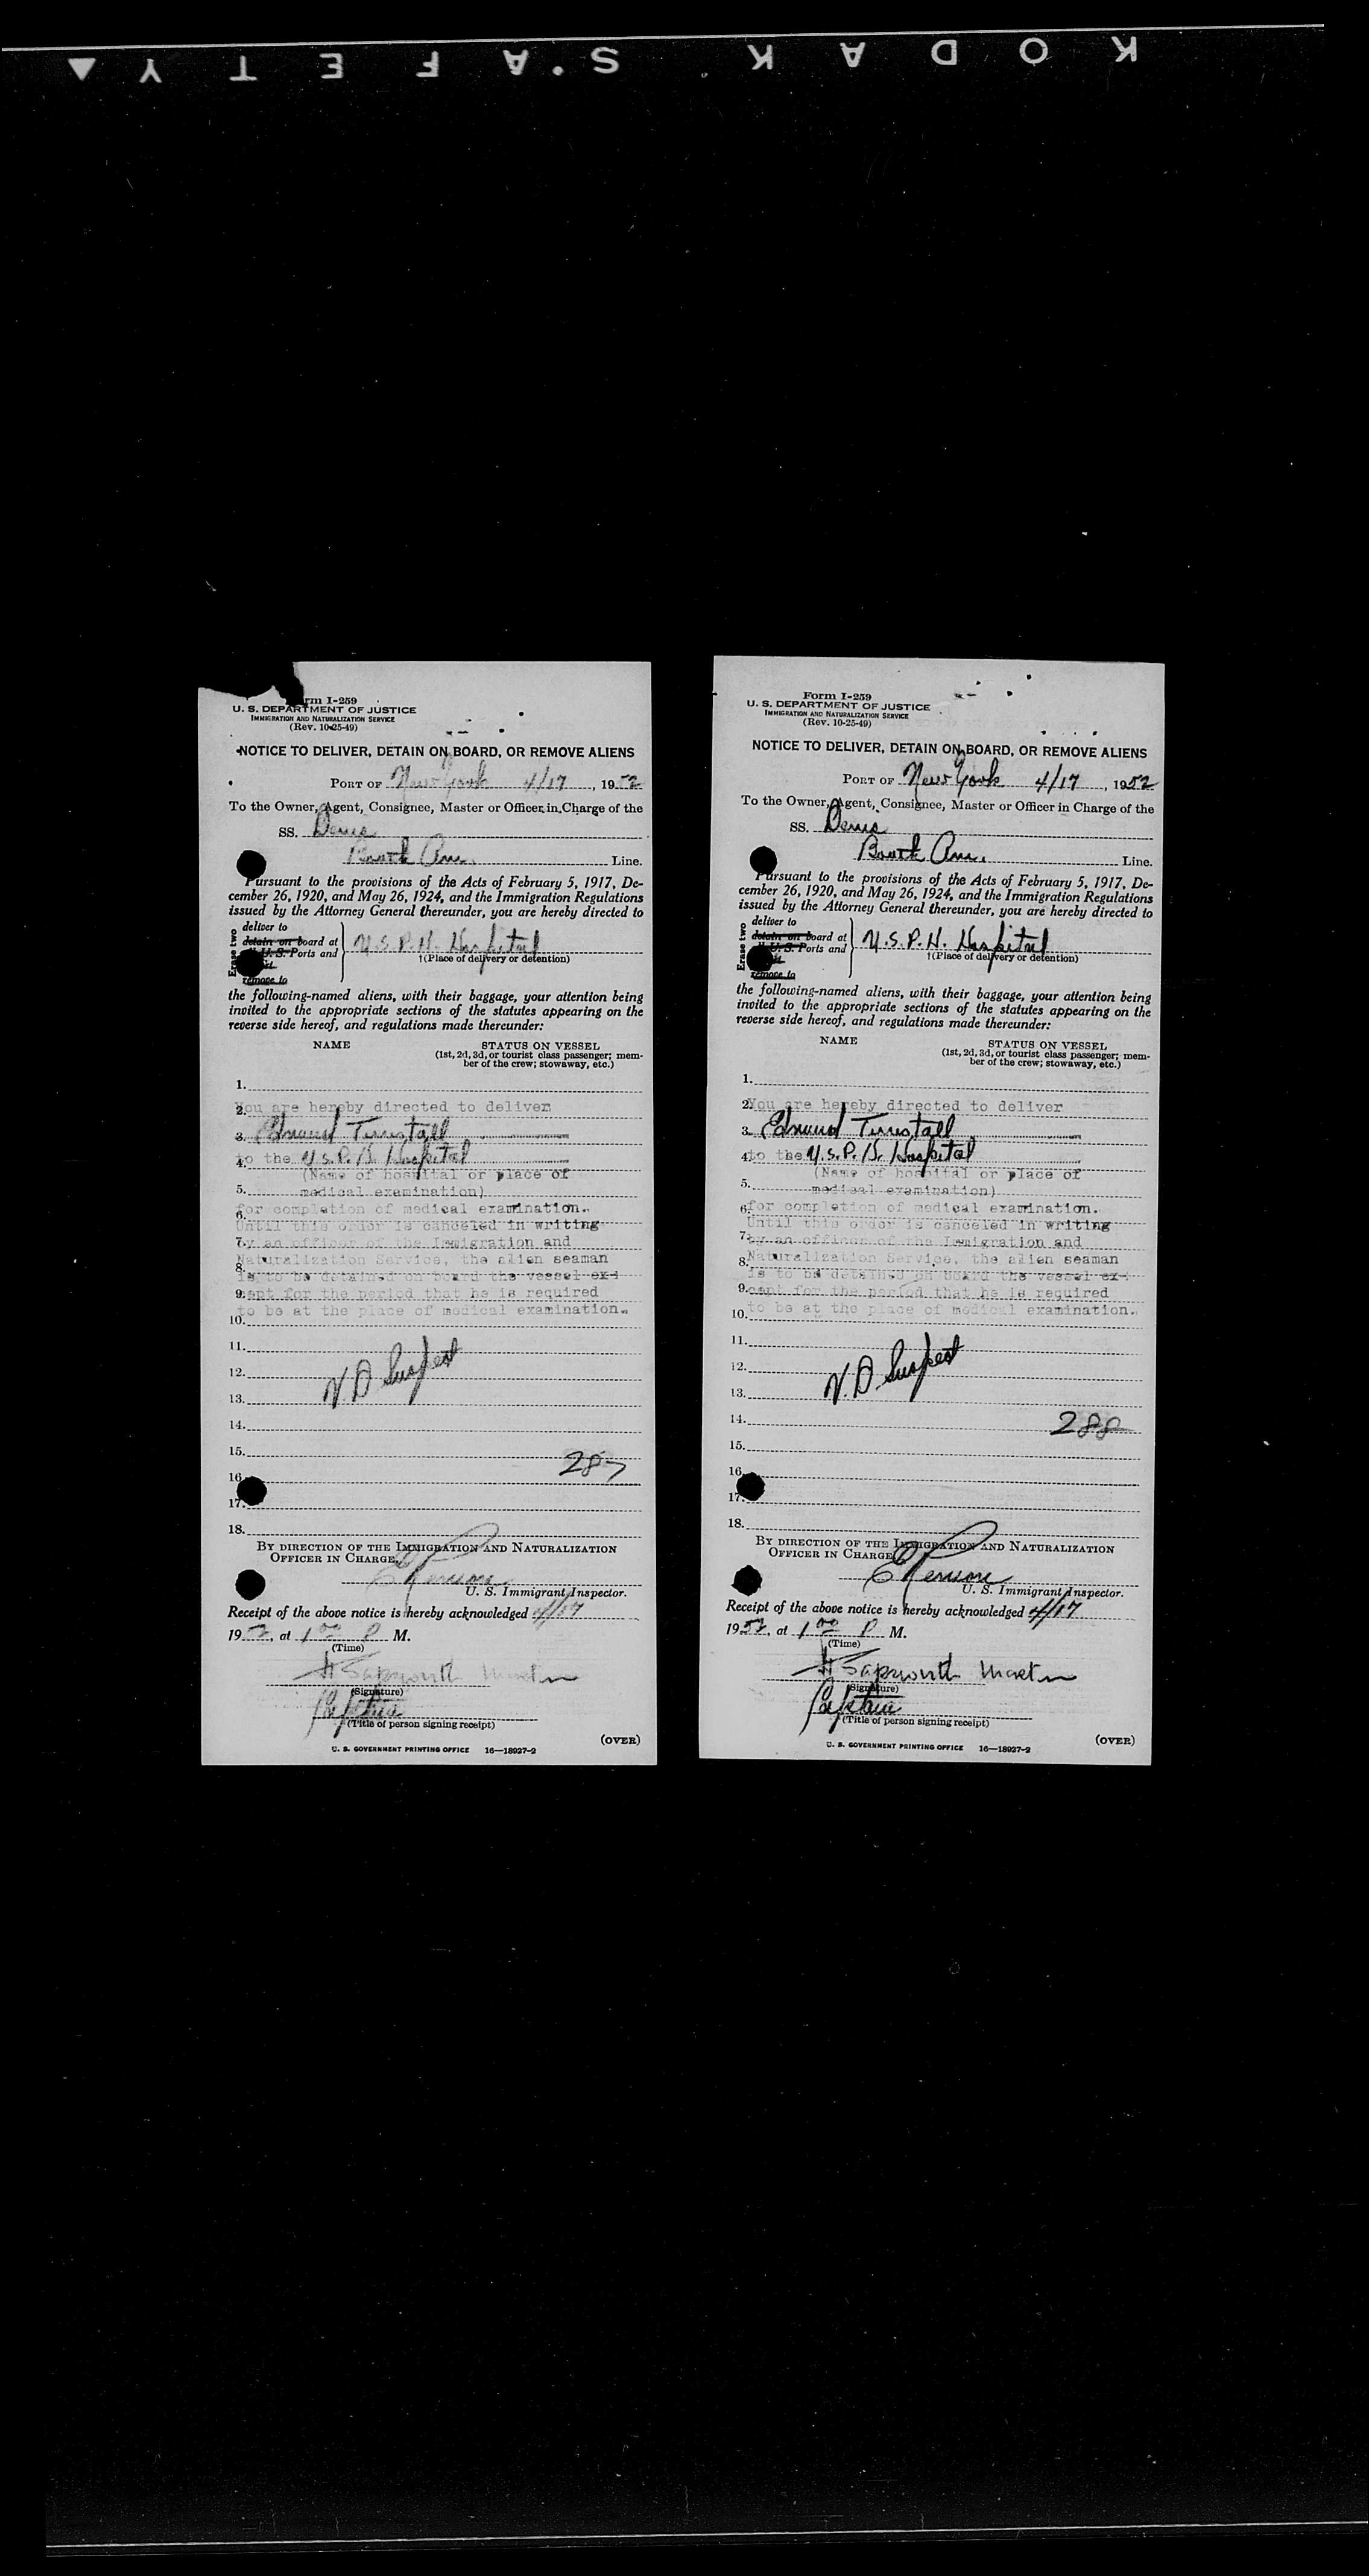 KODAK SAFETY
Form I-259
U. S. DEPARTMENT OF JUSTICE
IMMIGRATION AND NATURALIZATION SERVICE
(Rev. 10-25-49)
NOTICE TO DELIVER, DETAIN ON BOARD, OR REMOVE ALIENS
PORT OF New York 4/17, 1952
To the Owner, Agent, Consignee, Master or Officer in Charge of the
SS. Denis
Booth Am. Line.
Pursuant to the provisions of the Acts of February 5, 1917, De-
cember 26, 1920, and May 26, 1924, and the Immigration Regulations
issued by the Attorney General thereunder, you are hereby directed to
Erase two
deliver to
detain on board at
U. S. Ports and
remove to
U.S.P.H. Hospital
†(Place of delivery or detention)
the following-named aliens, with their baggage, your attention being
invited to the appropriate sections of the statutes appearing on the
reverse side hereof, and regulations made thereunder:
NAME STATUS ON VESSEL
(1st, 2d, 3d, or tourist class passenger; mem-
ber of the crew; stowaway, etc.)
1.
2. You are hereby directed to deliver
3. Edmund Tunstall
4. to the U.S.P.H. Hospital
(Name of hospital or place of
5. medical examination)
6. for completion of medical examination.
Until this order is canceled in writing
7. by an officer of the Immigration and
8. Naturalization Service, the alien seaman
is to be detained on board the vessel ex-
9. cept for the period that he is required
10. to be at the place of medical examination.
11.
12. V.D Suspect
13.
14.
15.
287
16.
17.
18.
BY DIRECTION OF THE IMMIGRATION AND NATURALIZATION
OFFICER IN CHARGE
U. S. Immigrant Inspector.
Receipt of the above notice is hereby acknowledged 4/17
1952, at 1 00 P M.
(Time)
(Signature)
Captain
(Title of person signing receipt)
(OVER)
U. S. GOVERNMENT PRINTING OFFICE 16—18927-2
Form I-259
U. S. DEPARTMENT OF JUSTICE
IMMIGRATION AND NATURALIZATION SERVICE
(Rev. 10-25-49)
NOTICE TO DELIVER, DETAIN ON BOARD, OR REMOVE ALIENS
PORT OF New York 4/17, 1952
To the Owner, Agent, Consignee, Master or Officer in Charge of the
SS. Denis
Booth Am. Line.
Pursuant to the provisions of the Acts of February 5, 1917, De-
cember 26, 1920, and May 26, 1924, and the Immigration Regulations
issued by the Attorney General thereunder, you are hereby directed to
Erase two
deliver to
detain on board at
U. S. Ports and
remove to
U.S.P.H. Hospital
†(Place of delivery or detention)
the following-named aliens, with their baggage, your attention being
invited to the appropriate sections of the statutes appearing on the
reverse side hereof, and regulations made thereunder:
NAME STATUS ON VESSEL
(1st, 2d, 3d, or tourist class passenger; mem-
ber of the crew; stowaway, etc.)
1.
2. You are hereby directed to deliver
3. Edmund Tunstall
4. to the U.S.P.H. Hospital
(Name of hospital or place of
5. medical examination)
6. for completion of medical examination.
Until this order is canceled in writing
7. by an officer of the Immigration and
8. Naturalization Service, the alien seaman
is to be detained on board the vessel ex-
9. cept for the period that he is required
10. to be at the place of medical examination.
11.
12. V.D Suspect
13.
14. 288
15.
16.
17.
18.
BY DIRECTION OF THE IMMIGRATION AND NATURALIZATION
OFFICER IN CHARGE
U. S. Immigrant Inspector.
Receipt of the above notice is hereby acknowledged 4/17
1952, at 1 00 P M.
(Time)
(Signature)
Captain
(Title of person signing receipt)
(OVER)
U. S. GOVERNMENT PRINTING OFFICE 16—18927-2